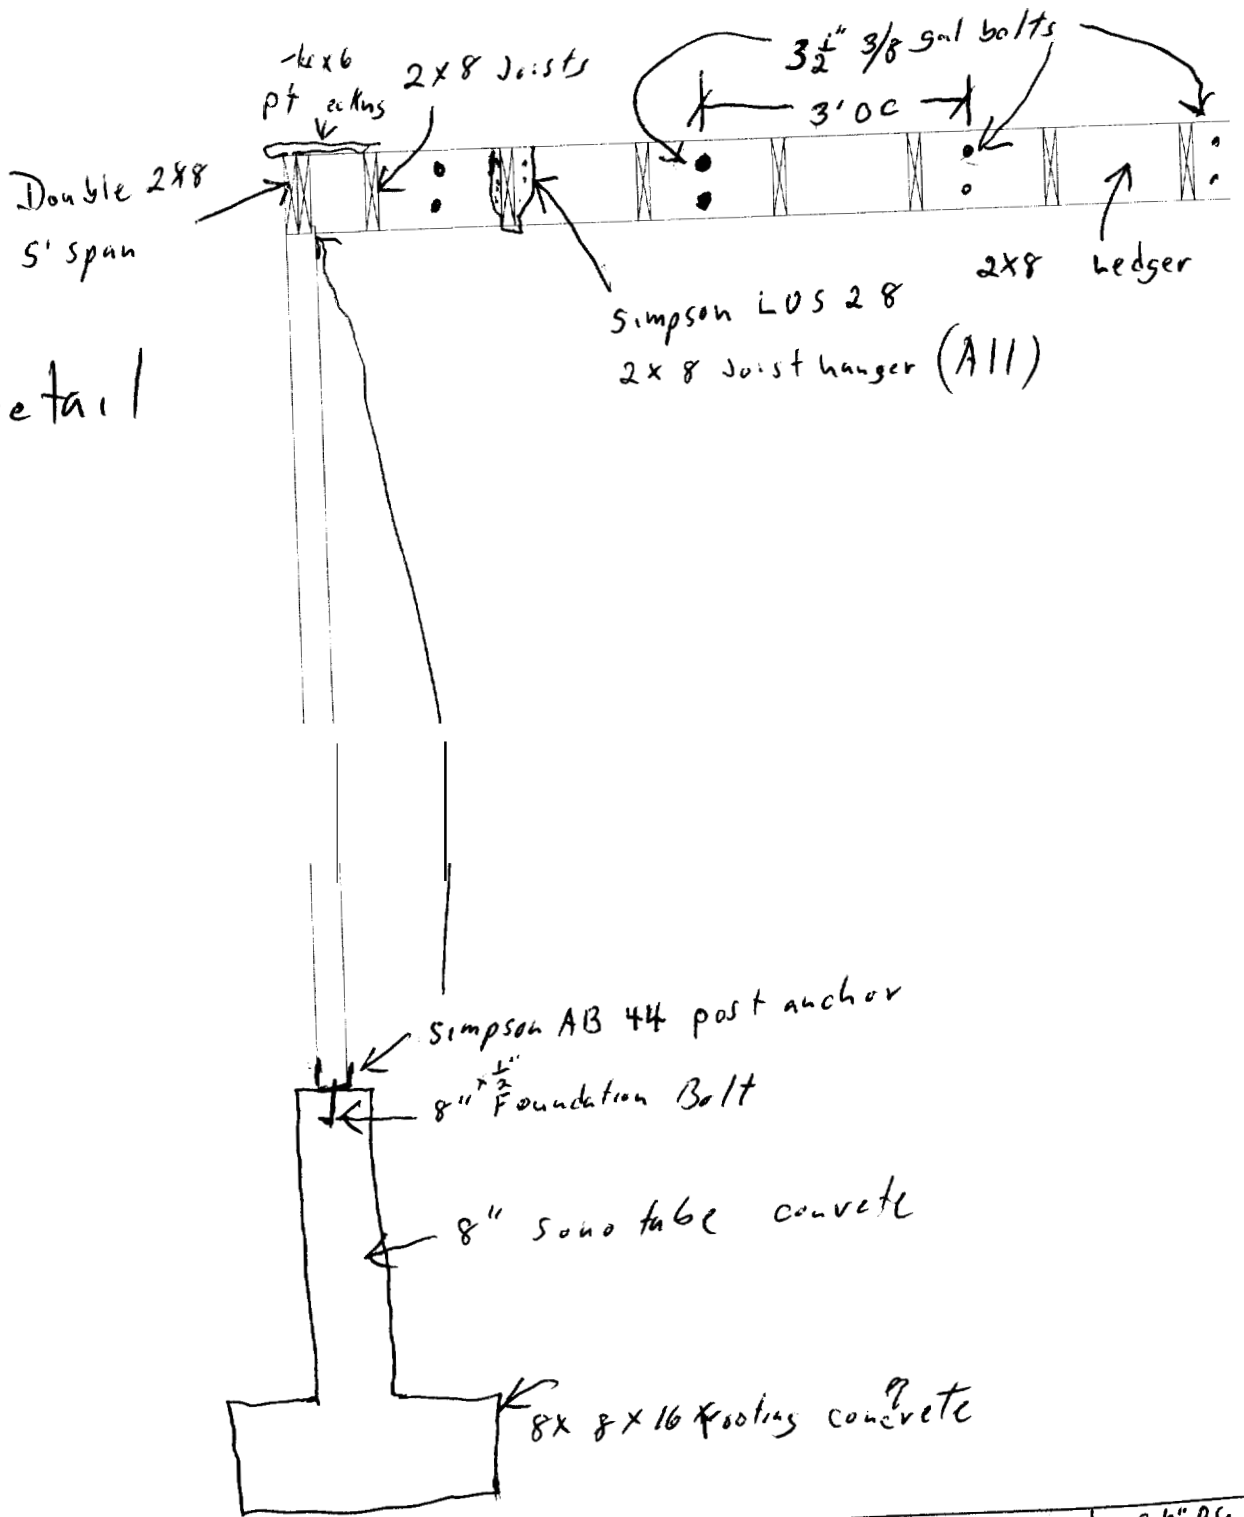 3 1/2" 3/8 gal bolts
x6
2x8 Joists
pt
3' OC
Double 2x8
5' span
2x8 Ledger
Simpson LUS 28
2x8 Joist hanger (All)
etail
Simpson AB 44 post anchor
8" x 1/2" Foundation Bolt
8" sono tube concrete
8x 8x16 footing concrete